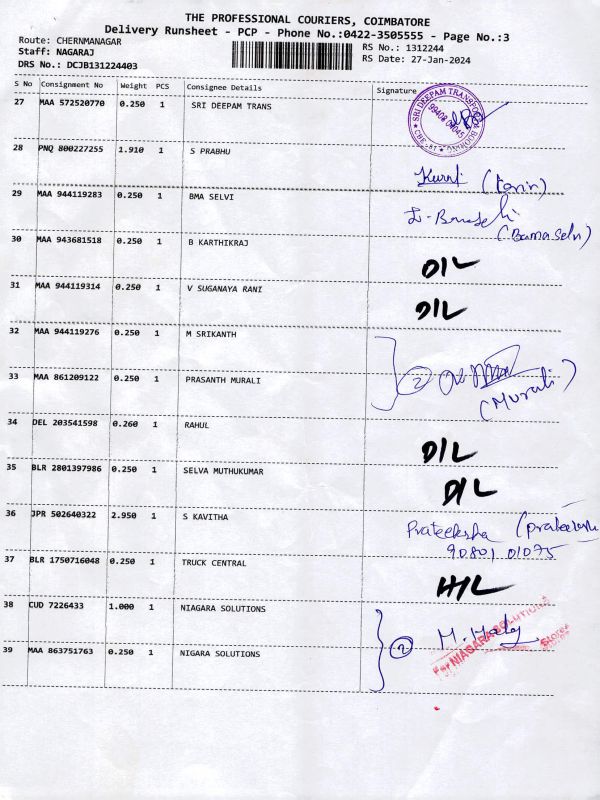 THE PROFESSIONAL COURIERS, COIMBATORE
Delivery Runsheet - PCP - Phone No.:0422-3505555 - Page No.:3
Route: CHERNMANAGAR RS No.: 1312244
Staff: NAGARAJ RS Date: 27-Jan-2024
DRS No.: DCJB131224403
S No Consignment No Weight PCS Consignee Details Signature
27 MAA 572520770 0.250 1 SRI DEEPAM TRANS
SRI DEEPAM TRANSPORT
28 PNQ 800227255 1.910 1 S PRABHU
29 MAA 944119283 0.250 1 BMA SELVI
(Bama Selvi)
30 MAA 943681518 0.250 1 B KARTHIKRAJ D/L
31 MAA 944119314 0.250 1 V SUGANAYA RANI D/L
32 MAA 944119276 0.250 1 M SRIKANTH
2
33 MAA 861209122 0.250 1 PRASANTH MURALI
(Murali)
34 DEL 203541598 0.260 1 RAHUL D/L
35 BLR 2801397986 0.250 1 SELVA MUTHUKUMAR D/L
36 JPR 502640322 2.950 1 S KAVITHA
Prateeksha
90801 01075
37 BLR 1750716048 0.250 1 TRUCK CENTRAL H/L
38 CUD 7226433 1.000 1 NIAGARA SOLUTIONS
2
For NIAGARA SOLUTIONS
39 MAA 863751763 0.250 1 NIGARA SOLUTIONS